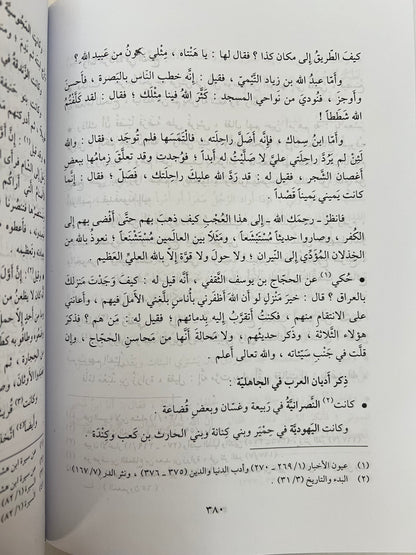 كيفَ الطَّريقُ إلى مكان كذا ؟ فقال لها : يا هَنْتاه ، مِثْلي يكونُ من عَبيد الله ؟
وأمّا عبدُ الله بن زياد التَّيْمِيّ ، فقيل : إنَّه خطب النّاس بالبَصرة ، فأحسنَ
وأوجزَ ، فنُودِيَ من نواحي المسجد : كَثَّرَ اللهُ فينا مِثْلَك ؛ فقال : لقد كلَّفْتُمُ
الله شَطَطاً !
وأمّا ابنُ سِماك ، فإنَّه أضَلَّ راحِلتَه ، فالْتَمَسَها فلم تُوجَد ، فقال : والله
لَئِنْ لم يَرُدَّ راحلتي عليَّ لا صَلَّيْتُ له أبداً ؛ فوُجدت وقد تعلَّقَ زِمامُها ببعضِ
أغصانِ الشَّجرِ ، فقيل له : قد رَدَّ اللهُ عليكَ راحِلتَك ، فَصَلِّ ؛ فقال : إنّما
كانت يَميني يَميناً قَصْداً .
فانظُرْ ـ رحِمَك الله ـ إلى هذا العُجْبِ كيفَ ذهبَ بهم حتَّى أفْضَى بهم إلى
الكُفر ، وصاروا حديثاً مُسْتَشْنَعاً ، ومَثَلاً بين العالَمين مُسْتَبْشَعاً ؛ نعوذُ بالله من
الخِذلانِ المُؤدِّي إلى النِّيران ؛ ولا حولَ ولا قوَّةَ إلاّ بالله العليِّ العظيم .
● حُكي (١) عن الحجّاج بن يوسف الثَّقفي ، أنَّه قيل له : كيفَ وَجَدْتَ مَنزِلَكَ
بالعراق ؟ قال : خيرَ مَنْزِلٍ لو أن الله أظفرني بأُناسٍ بلَّغني الأملَ فيهم ، وأعانني
على الانتقامِ منهم ، فكنتُ أتقرَّبُ إليه بدمائهم ؛ فقيل له : مَن هم ؟ فذكر
هؤلاء الثَّلاثة ، وذكر حديثَهم ، ولا مَحالةَ أنَّها من محاسنِ الحجّاج ، وإن
قلَّت في جَنْبِ سَيِّئاته ، والله تعالى أعلم .
ذِكر أديان العرب في الجاهليّة :
● كانت (٢) النَّصرانيَّةُ في رَبيعة وغَسّان وبعض قُضاعة .
وكانت اليَهوديَّة في حِمْيَر وبني كِنانة وبني الحارث بن كَعب وكِنْدَة .
(١) عيون الأخبار (١/ ٢٦٩ ـ ٢٧٠) وأدب الدنيا والدين (٣٧٥ ـ ٣٧٦) ، ونثر الدر (٧/ ١٦٧) .
(٢) البدء والتاريخ (٤/ ٣١) .
٣٨٠